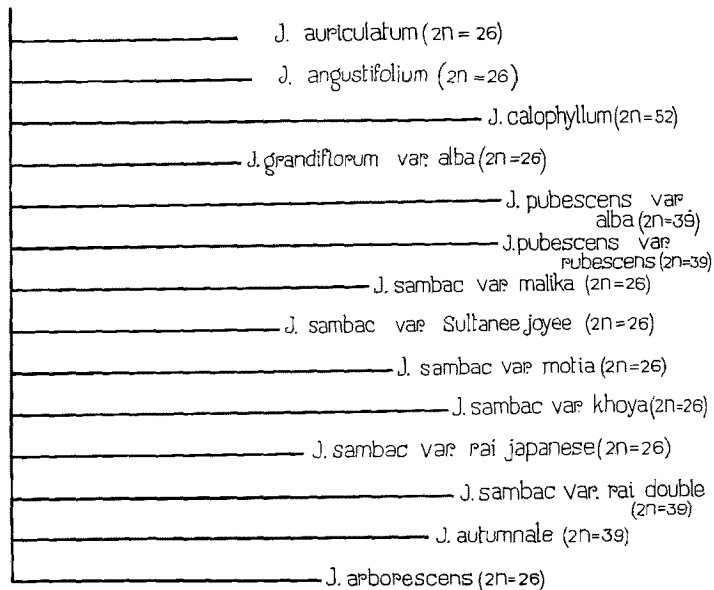 J. auriculatum (2n = 26)
J. angustifolium (2n =26)
J. calophyllum (2n=52)
J. grandiflorum var. alba (2n=26)
J. pubescens var
alba (2n=39)
J. pubescens var
rubescens (2n=39)
J. sambac var malika (2n=26)
J. sambac var Sultanee joyee (2n=26)
J. sambac var motia (2n=26)
J. sambac var khoya (2n=26)
J. sambac var rai japanese (2n=26)
J. sambac var. rai double
(2n=39)
J. autumnale (2n=39)
J. arborescens (2n=26)